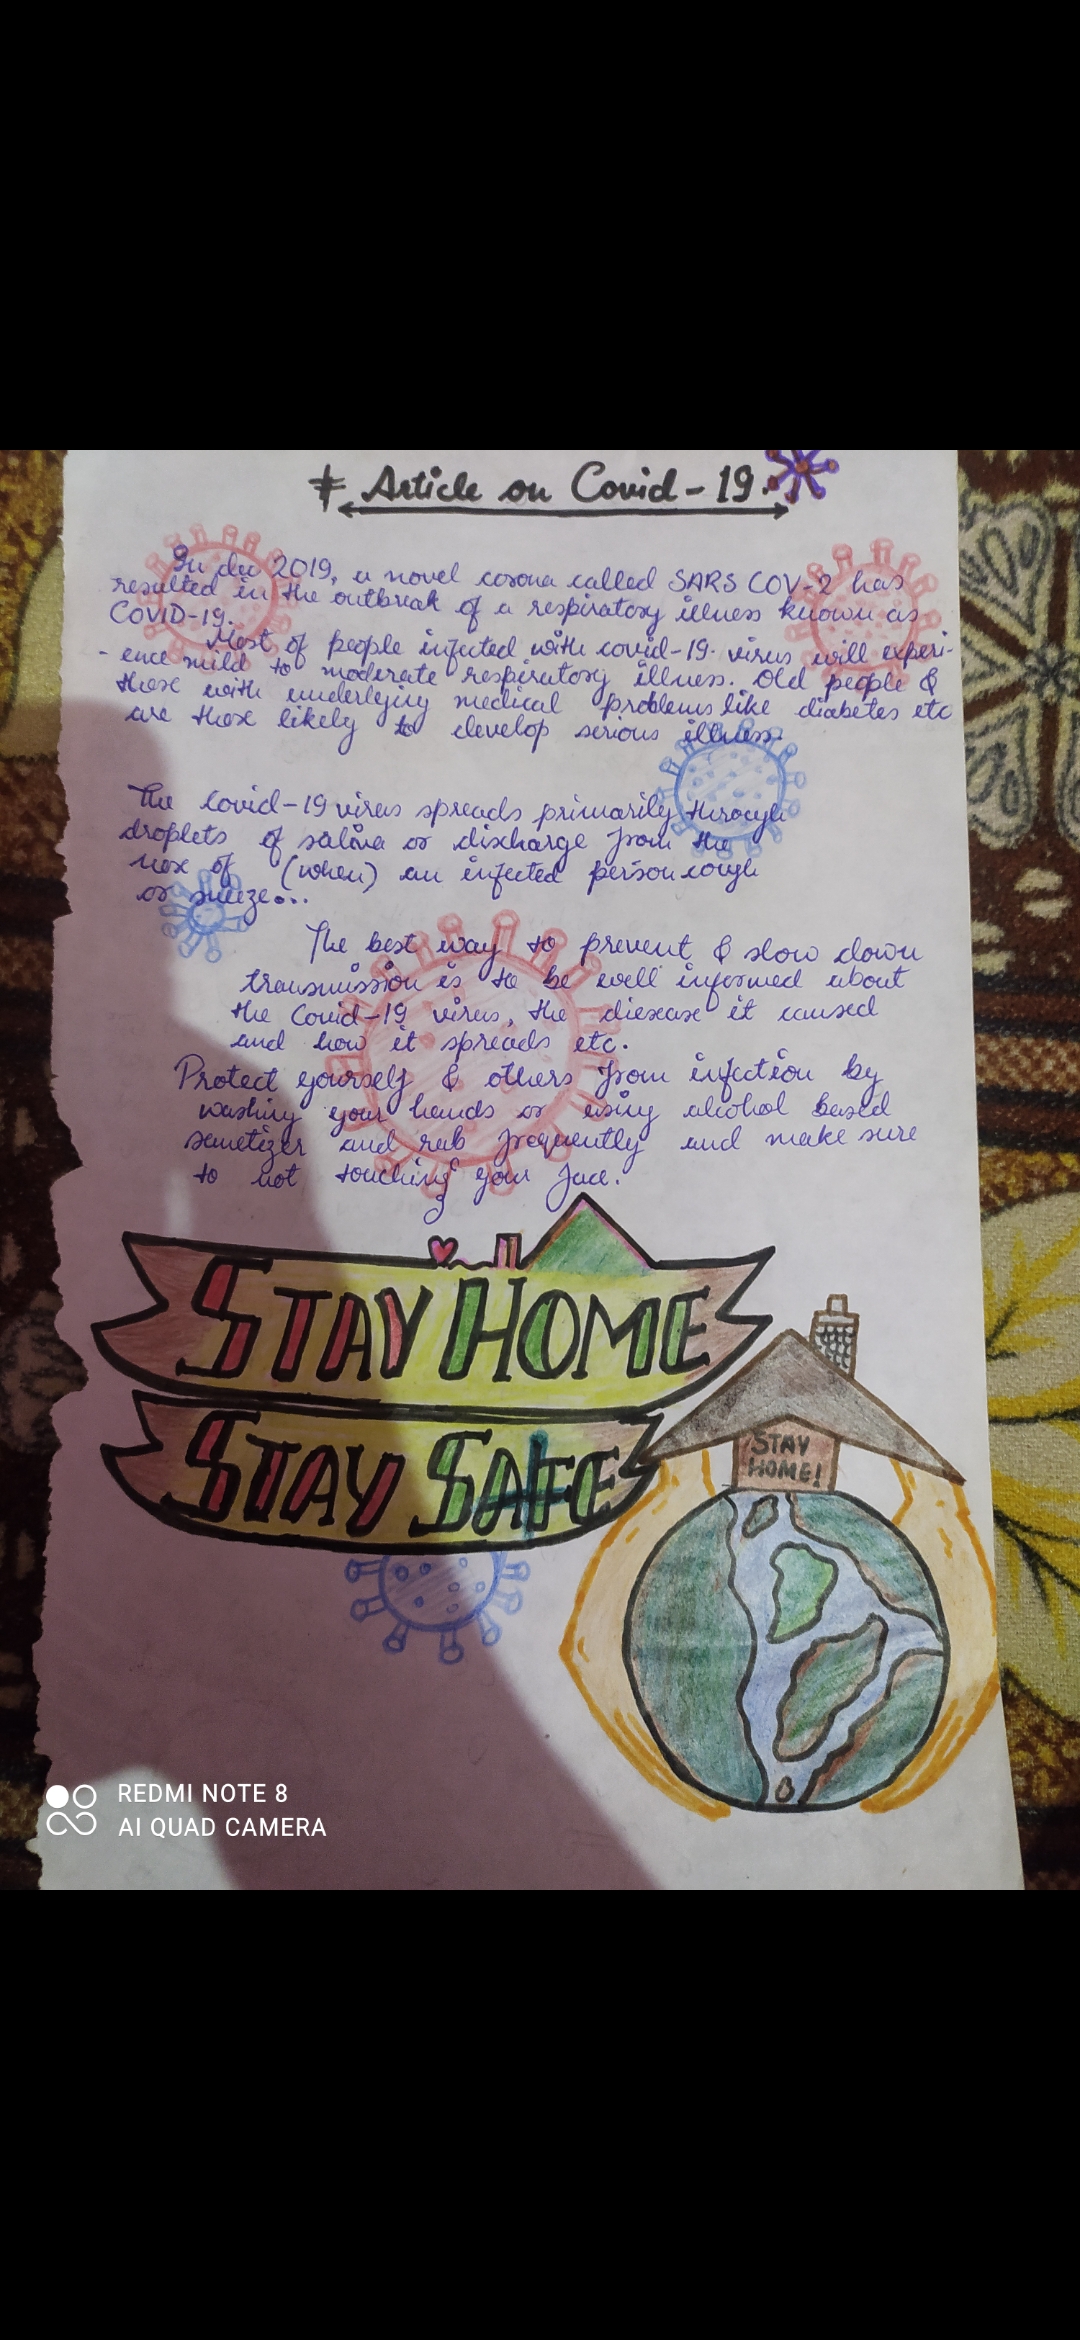 # Article on Covid-19.
In dec 2019, a novel corona called SARS COV-2 has
resulted in the outbreak of a respiratory illness known as
COVID-19.
Most of people infected with covid-19. virus will experi-
- ence mild to moderate respiratory illness. Old people &
those with underlying medical problems like diabetes etc
are those likely to develop serious illness.
The Covid-19 virus spreads primarily through
droplets of saliva or discharge from the
nose of (when) an infected person cough
or sneeze...
The best way to prevent & slow down
transmission is to be well informed about
the Covid-19 virus, the diesease it caused
and how it spreads etc.
Protect yourself & others from infection by
washing your hands or using alcohol based
sanetizer and rub frequently and make sure
to not touching your face.
STAY HOME
STAY SAFE
STAY
HOME!
REDMI NOTE 8
AI QUAD CAMERA